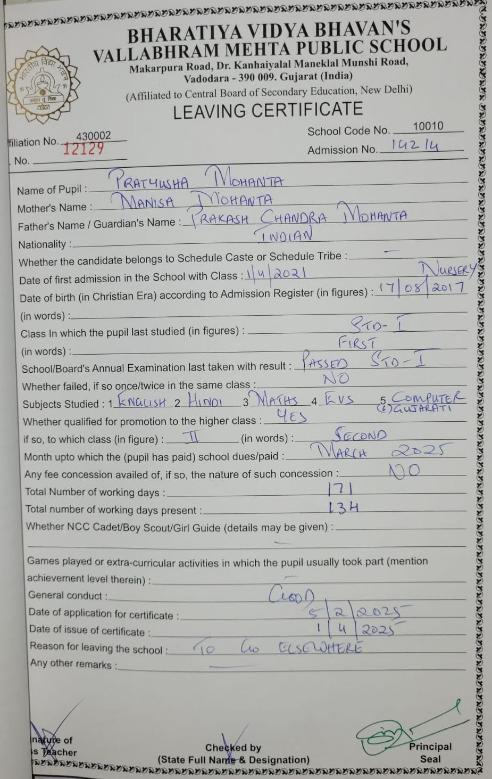 BHARATIYA VIDYA BHAVAN'S
VALLABHRAM MEHTA PUBLIC SCHOOL
Makarpura Road, Dr. Kanhaiyalal Maneklal Munshi Road,
Vadodara - 390 009. Gujarat (India)
(Affiliated to Central Board of Secondary Education, New Delhi)
LEAVING CERTIFICATE
filiation No. 430002 School Code No. 10010
. No. 12129 Admission No. 14214
Name of Pupil : PRATYUSHA MOHANTA
Mother's Name : MANISA MOHANTA
Father's Name / Guardian's Name : PRAKASH CHANDRA MOHANTA
Nationality : INDIAN
Whether the candidate belongs to Schedule Caste or Schedule Tribe : —
Date of first admission in the School with Class : 1/4/2021 NURSERY
Date of birth (in Christian Era) according to Admission Register (in figures) : 17/08/2017
(in words) :
Class In which the pupil last studied (in figures) : STD- I
(in words) : FIRST
School/Board's Annual Examination last taken with result : PASSED STD-I
Whether failed, if so once/twice in the same class : NO
Subjects Studied : 1. ENGLISH 2. HINDI 3. MATHS 4. EVS 5. COMPUTER
(6) GUJARATI
Whether qualified for promotion to the higher class : YES
if so, to which class (in figure) : II (in words) : SECOND
Month upto which the (pupil has paid) school dues/paid : MARCH 2025
Any fee concession availed of, if so, the nature of such concession : NO
Total Number of working days : 171
Total number of working days present : 134
Whether NCC Cadet/Boy Scout/Girl Guide (details may be given) :
—
Games played or extra-curricular activities in which the pupil usually took part (mention
achievement level therein) : —
General conduct : GOOD
Date of application for certificate : 5/2/2025
Date of issue of certificate : 1/4/2025
Reason for leaving the school : TO GO ELSEWHERE
Any other remarks : —
nature of
s Teacher
Checked by
(State Full Name & Designation)
Principal
Seal